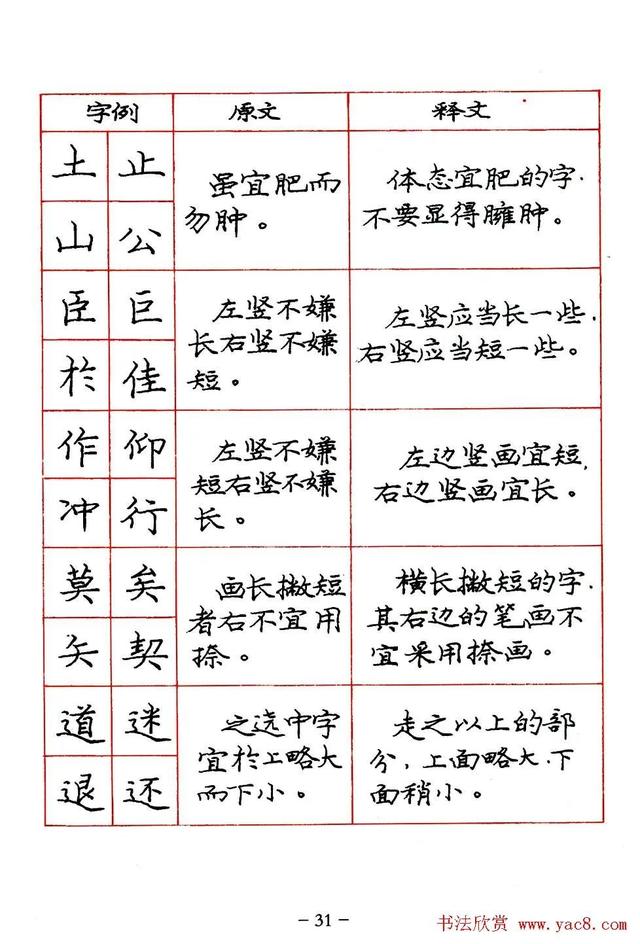 字例 原文 释文
土 止
山 公
虽宜肥而
勿肿。
体态宜肥的字,
不要显得臃肿。
臣 巨
於 佳
左竖不嫌
长右竖不嫌
短。
左竖应当长一些,
右竖应当短一些。
作 仰
冲 行
左竖不嫌
短右竖不嫌
长。
左边竖画宜短,
右边竖画宜长。
莫 矣
矢 契
画长撇短
者右不宜用
捺。
横长撇短的字,
其右边的笔画不
宜采用捺画。
道 迷
退 还
之选中字
宜於上略大
而下小。
走之以上的部
分,上面略大,下
面稍小。
- 31 -
书法欣赏 www.yac8.com